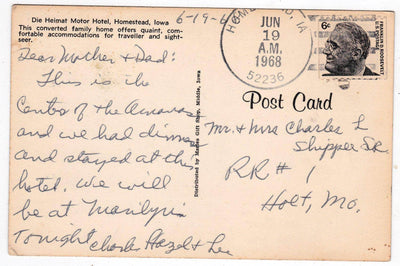 Die Heimat Motor Hotel, Homestead, Iowa
This converted family home offers quaint, com-
fortable accommodations for traveller and sight-
seer.
6-19-6
Dear Mother & Dad:
This is the
Center of the Amanas
and we had dinner
and stayed at this
hotel. We will
be at Marilyn
Tonight Charles Hazel & Lee
Distributed by Gift Shop, Middle, Iowa
HOMESTEAD, IA
JUN
19
A.M.
1968
52236
6c
FRANKLIN D. ROOSEVELT
Post Card
Mr. & Mrs Charles L
Shipper Sr.
RR # 1
Holt, Mo.